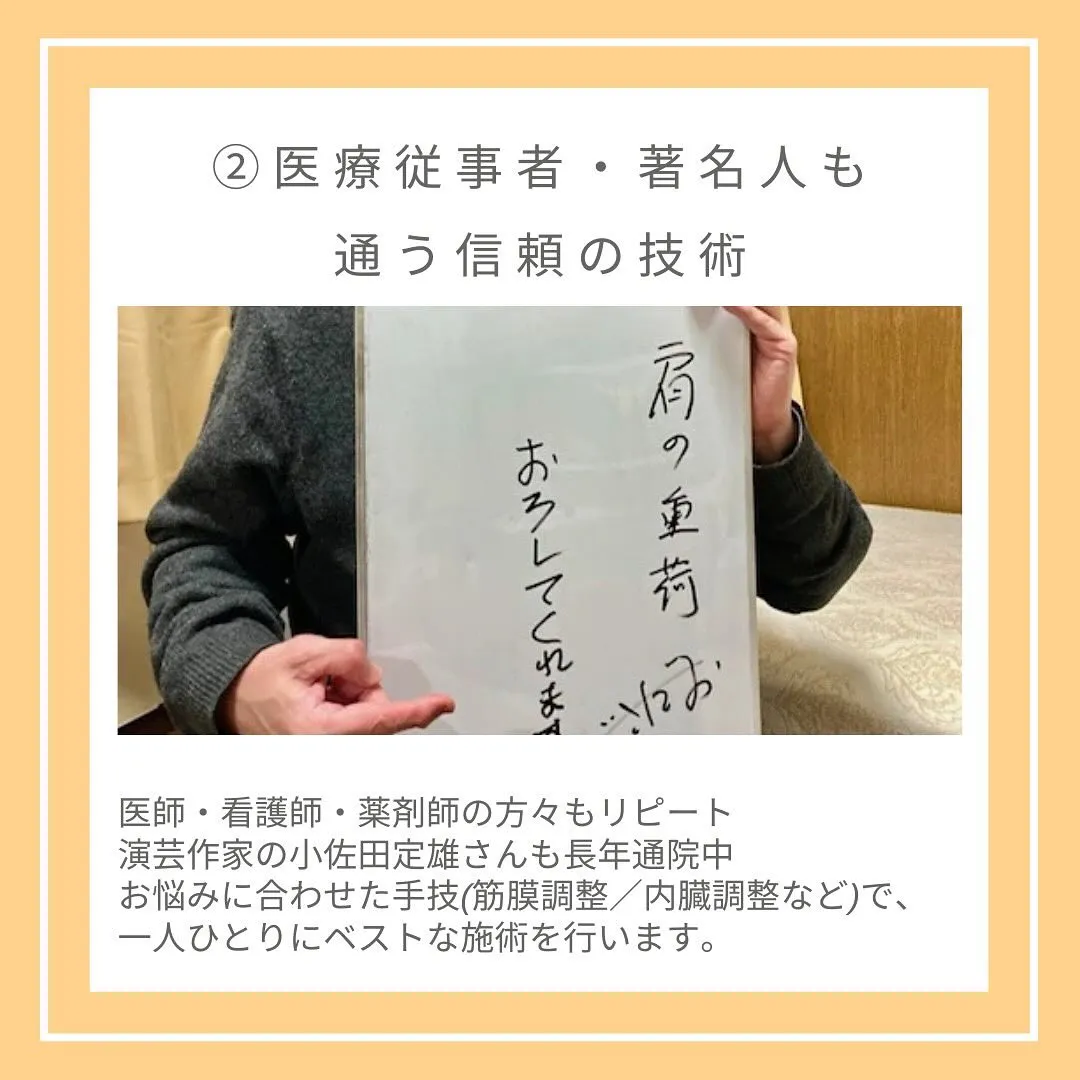 ②医療従事者・著名人も
通う信頼の技術
肩の重荷
おろしてくれま
医師・看護師・薬剤師の方々もリピート
演芸作家の小佐田定雄さんも長年通院中
お悩みに合わせた手技(筋膜調整／内臓調整など)で、
一人ひとりにベストな施術を行います。